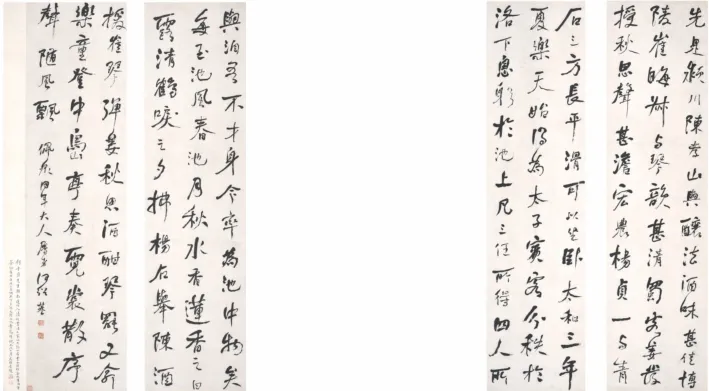 先是潁川陳孝山與釀法酒味甚佳博
陵崔晦叔与琴韻甚清蜀客姜發
授秋思聲甚澹宏農楊貞一与青
石三方長平滑可以坐臥太和三年
夏樂天始得為太子賓客分秩於
洛下息躬於池上凡三任所得四人所
與洎吾不才身今率為池中物矣
每至池風春池月秋水香蓮香之旦
露清鶴唳之夕拂楊石舉陳酒
援崔琴彈姜秋思酒酣琴罷又命
樂童登中島亭奏霓裳散序
聲隨風飄 大人屬書何紹基